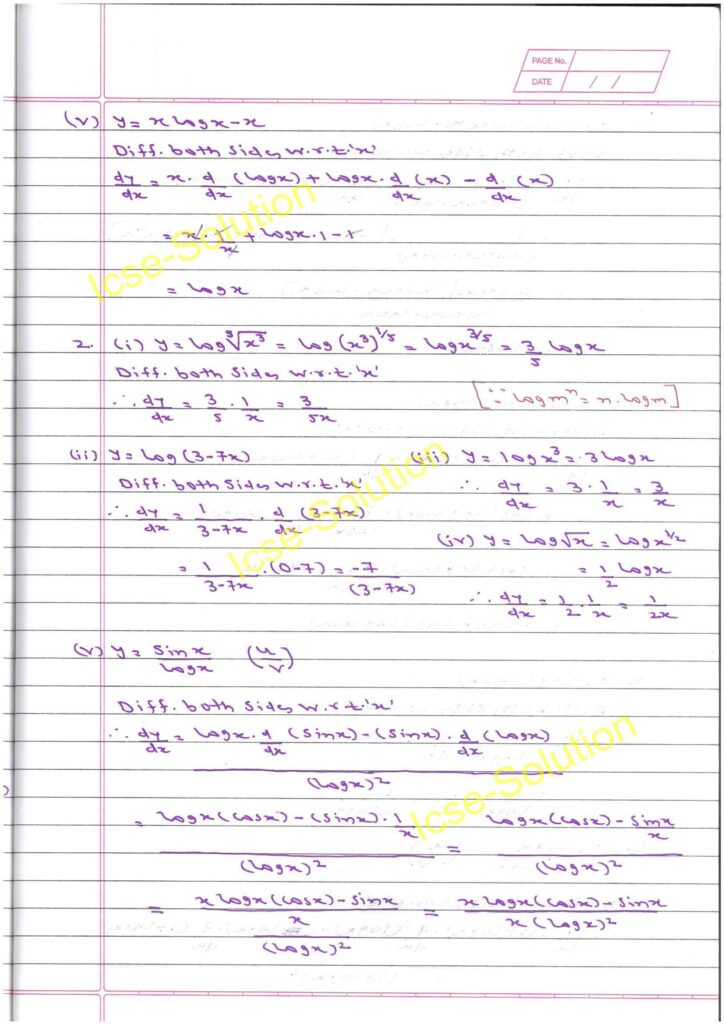 PAGE No.
DATE / /
(v) y = x logx - x
Diff. both sides w.r.t. 'x'
dy/dx = x. d/dx (logx) + logx. d/dx (x) - d/dx (x)
= x. 1/x + logx. 1 - 1
= logx
2. (i) y = log ⁵√x³ = log (x³)^1/5 = logx^3/5 = 3/5 logx
Diff. both sides w.r.t. 'x'
∴ dy/dx = 3/5 . 1/x = 3/5x [∵ logmⁿ = n. logm]
(ii) y = log (3-7x)
Diff. both sides w.r.t. 'x'
∴ dy/dx = 1/3-7x . d/dx (3-7x)
= 1/3-7x .(0-7) = -7/(3-7x)
(iii) y = logx³ = 3logx
∴ dy/dx = 3. 1/x = 3/x
(iv) y = log√x = logx^1/2
= 1/2 logx
∴ dy/dx = 1/2 . 1/x = 1/2x
(v) y = sinx/logx (u/v)
Diff. both sides w.r.t. 'x'
∴ dy/dx = logx. d/dx (sinx) - (sinx). d/dx (logx)
(logx)²
= logx(cosx) - (sinx). 1/x / (logx)² = logx(cosx) - sinx/x / (logx)²
= x logx(cosx) - sinx / x / (logx)² = x logx(cosx) - sinx / x (logx)²
Icse-Solution
Icse-Solution
Icse-Solution